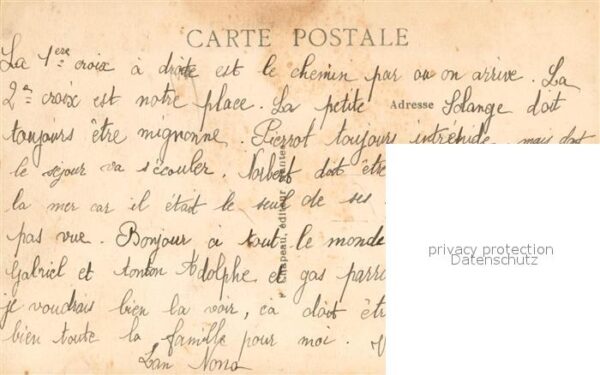 CARTE POSTALE
La 1ère croix à droite est le chemin par où on arrive. La
2e croix est notre place. La petite Solange doit
Adresse
toujours être mignonne. Pierrot toujours intrépide mais doit
le séjour va s'écouler. Norbert doit être
la mer car il était le seul de ses
pas vue. Bonjour à tout le monde
Gabriel et tonton Adolphe et gas
je voudrais bien la voir, ça doit
bien toute la famille pour moi.
Chapeau, éditeur, Nantes
privacy protection
Datenschutz